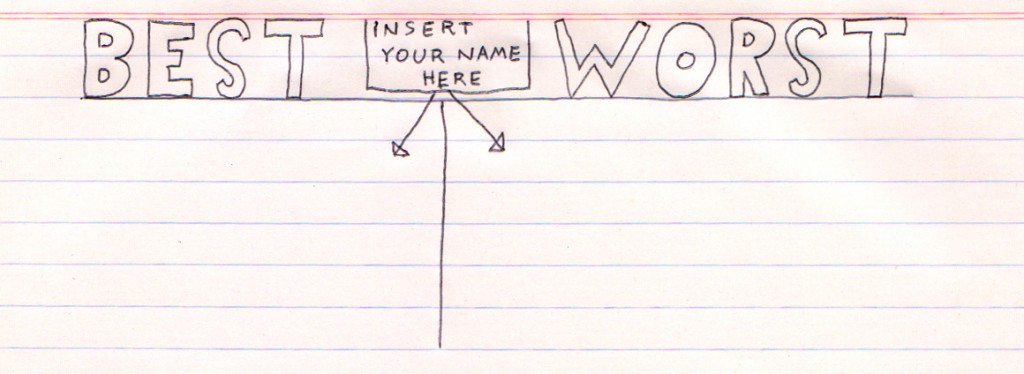 BEST INSERT WORST
YOUR NAME
HERE